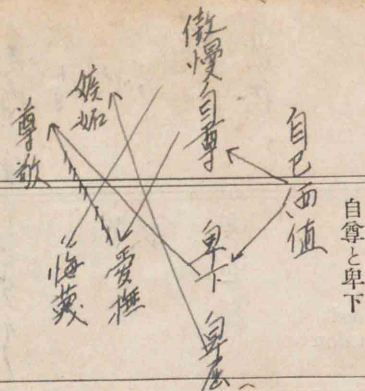 自尊と卑下
自己価値
傲慢自尊
卑下
卑屈
嫉妬
愛撫
侮蔑
尊敬